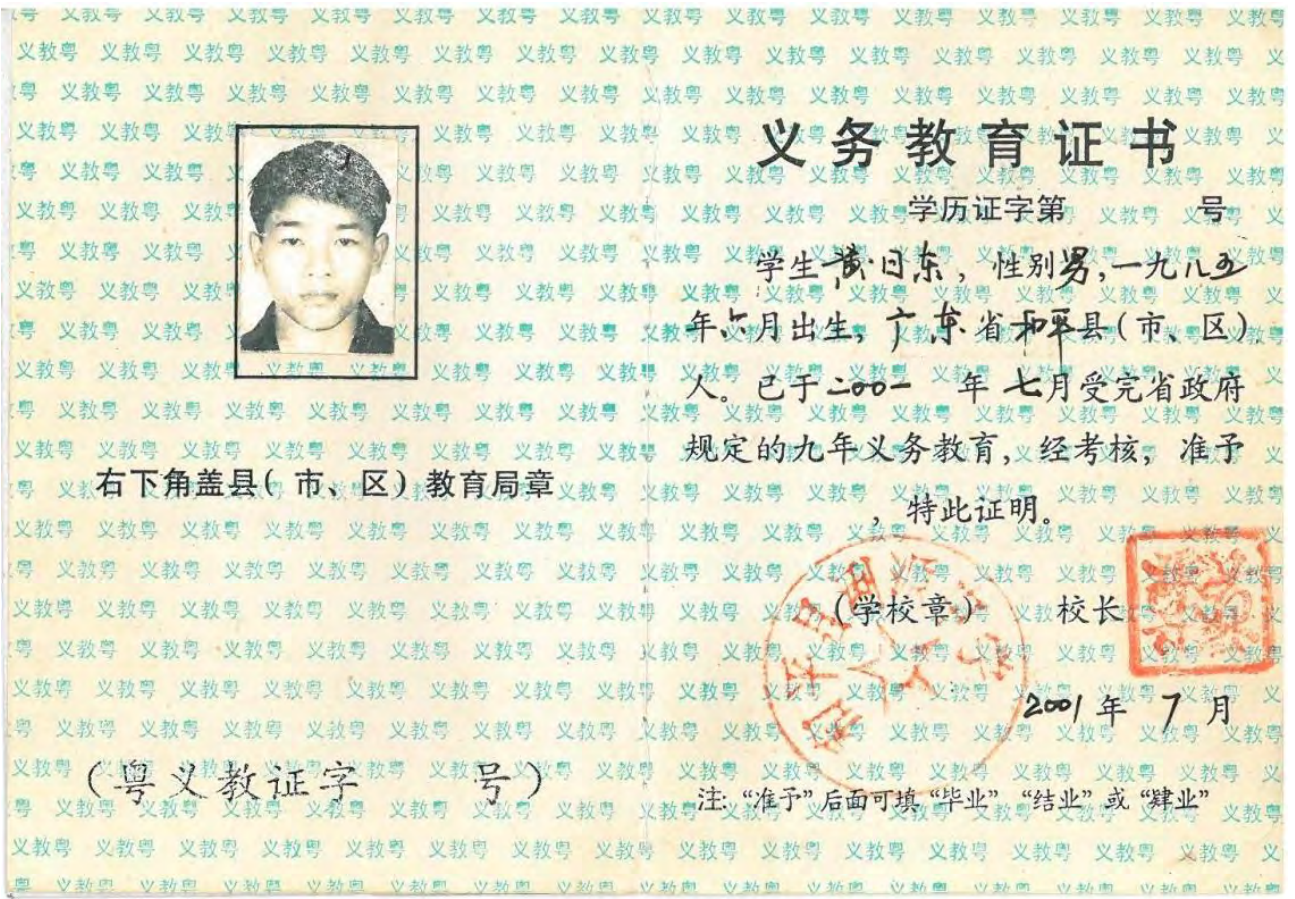 右下角盖县(市、区)教育局章
(粤义教证字 号)
义务教育证书
学历证字第 号
学生黄日东,性别男,一九八五
年六月出生,广东省和平县(市、区)
人。已于二00一 年七月受完省政府
规定的九年义务教育,经考核,准予
,特此证明。
(学校章) 校长
2001年7月
注:“准予”后面可填“毕业”“结业”或“肄业”